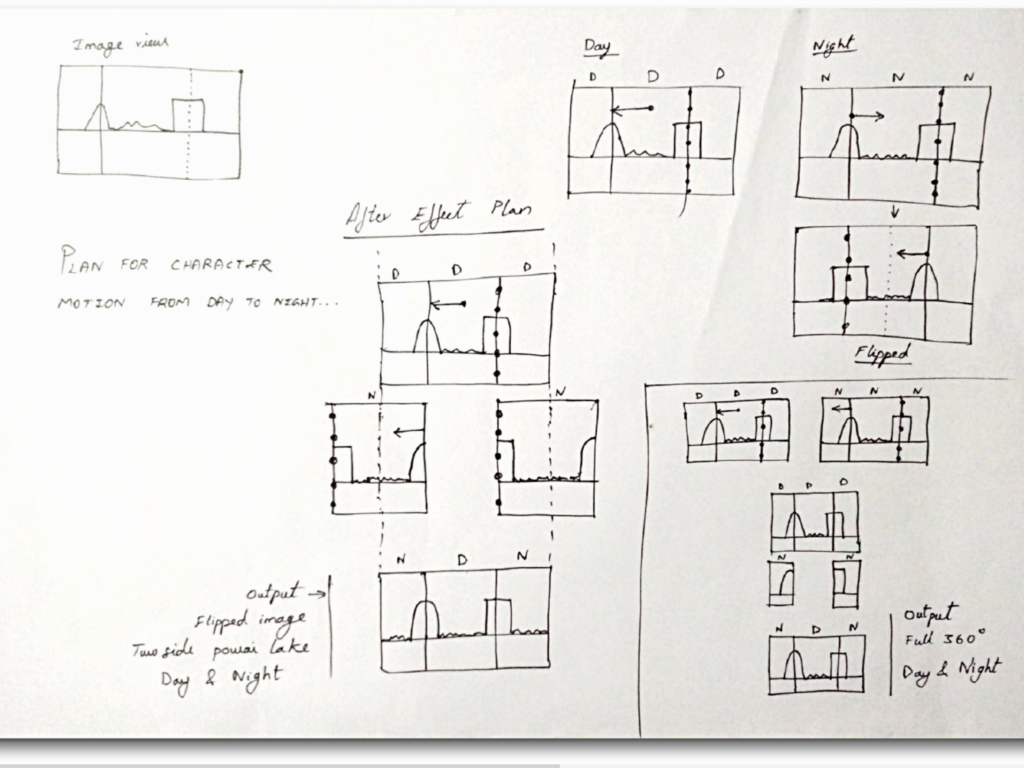 Image view
Day
D D D
Night
N N N
After Effect Plan
PLAN FOR CHARACTER
MOTION FROM DAY TO NIGHT...
D D D
Flipped
N N
D D D
N N N
D D D
N N
N D N
N D N
Output →
Flipped image
Two side powai lake
Day & Night
Output
Full 360°
Day & Night